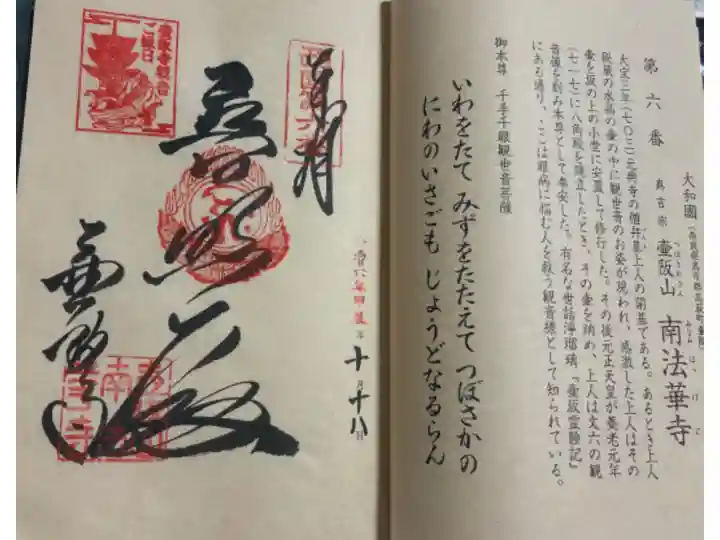 第六番
大和國（奈良県高市郡高取町壷阪）
真言宗 壷阪山 南法華寺
つぼさかさん みなみほっけじ
大宝三年（七〇三）元興寺の僧弁基上人の開基である。あるとき上人
秘蔵の水晶の壷の中に観世音のお姿が現われ、感激した上人はその
壷を坂の上の小堂に安置して修行した。その後元正天皇が養老元年
（七一七）に八角殿を建立したとき、その壷を納め、上人は丈六の観
音像を刻み本尊として奉安した。有名な世話浄瑠璃「壷阪霊験記」
にある通り、ここは眼病に悩む人を救う観音様として知られている。
御本尊 千手千眼観世音菩薩
いわをたて みずをたたえて つぼさかの
にわのいさごも じょうどなるらん
奉拝
西国第六番
普照殿
壷阪寺
年 十月十八日
南法華寺